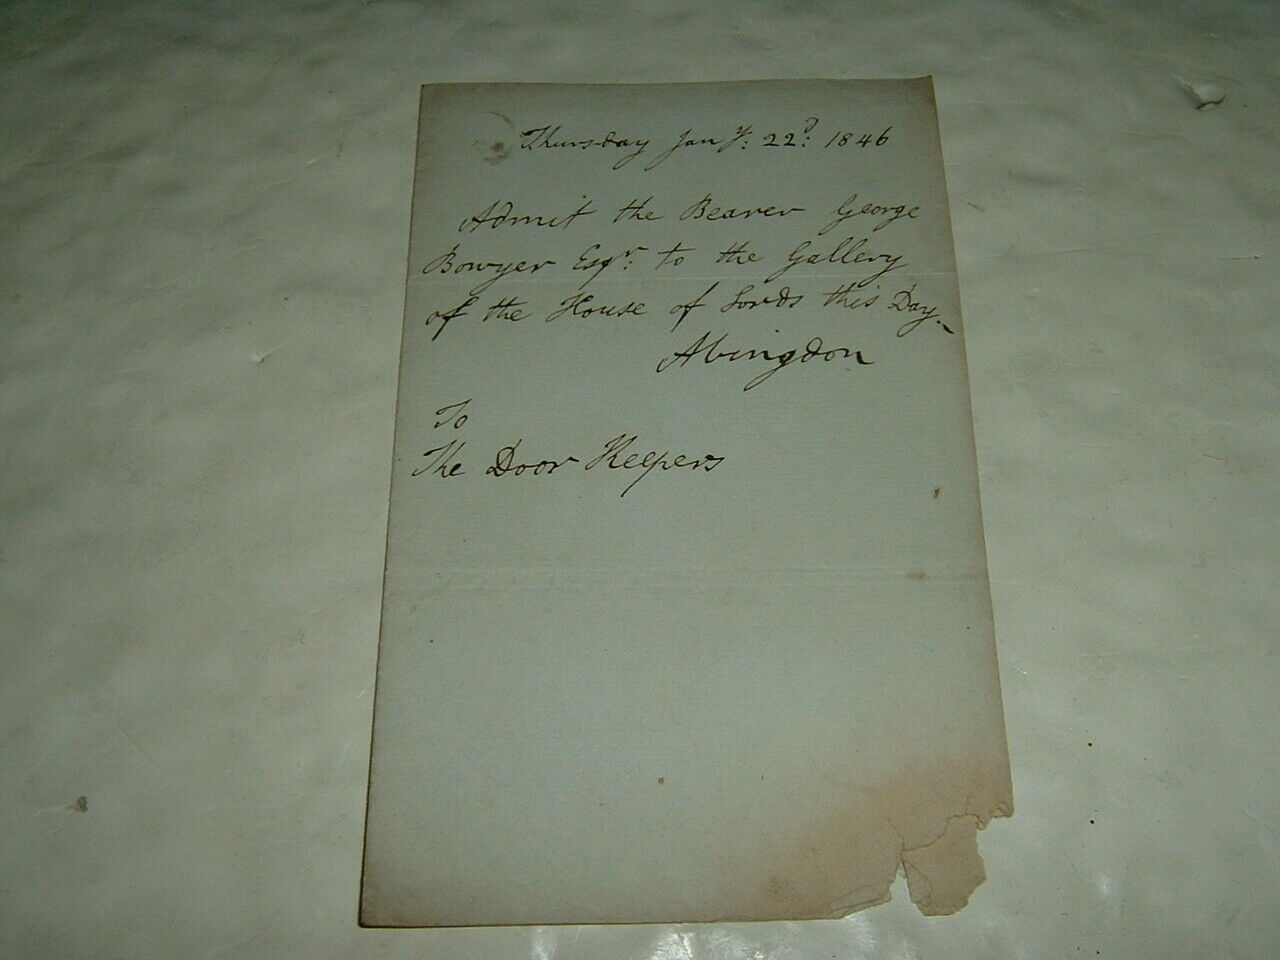 Thursday Jany: 22d: 1846
Admit the Bearer George
Bowyer Esqr: to the Gallery
of the House of Lords this Day.
Abingdon
To
The Door Keepers